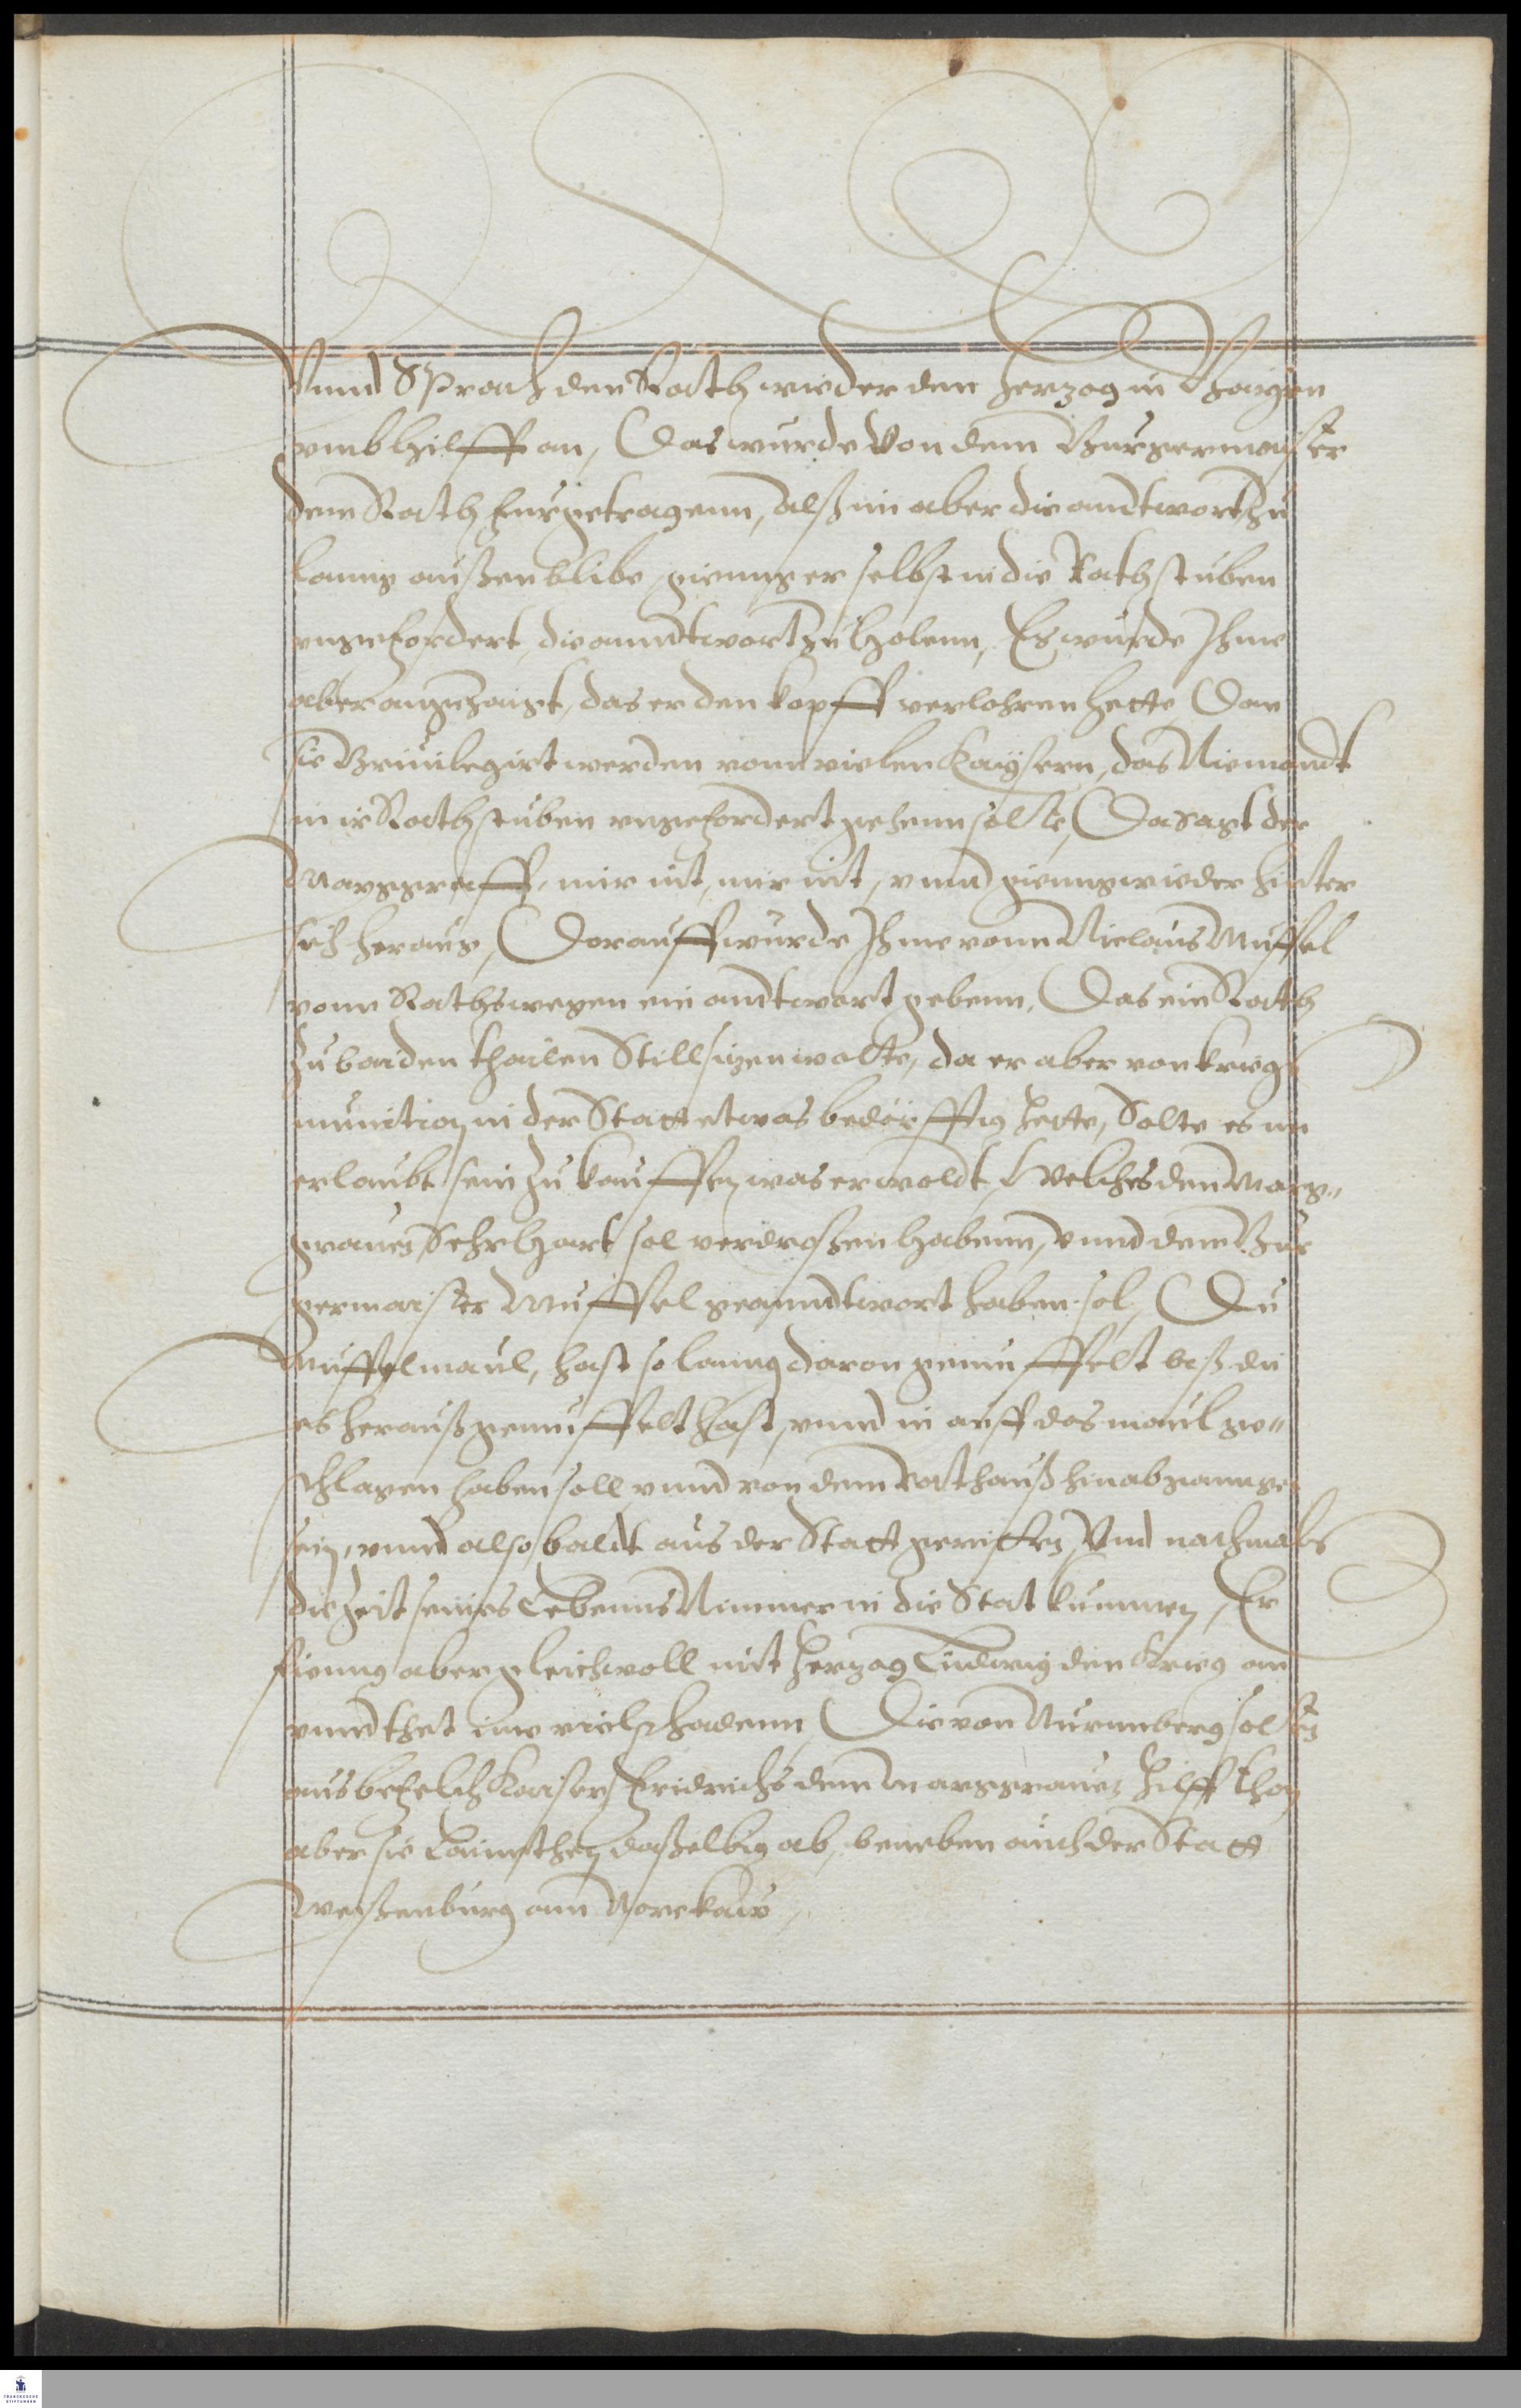 Vnnd Sprach den Rath wieder den herzog in Bayrn
vmb hilff an, Das wurde Von dem Burgermaister
dem Rath furgetragenn, alß im aber die andtwort zu
lanng außen blibe, gienng er selbst in die Rathstuben
vngefordert, die anndtwort zu holenn, Es wurde Ihme
aber angezaigt, das er den kopff verlohren hette, Dan
sie Priuilegirt werden vonn vielen Kaysern, das Niemandt
in ir Rathstuben vngefordert gehenn solte, Da sagt der
Marggraff, mir nit, mir nit, vnnd gienng wieder hinter
sich heraus, Darauff wurde Ihme vonn Niclaus Muffel
vonn Raths wegen ein andtwort gebenn, Das ein Rath
zu baiden thailen Still sitzen wolte, da er aber von kriegs
munition in der Statt etwas bedörfftig hette, Solte es im
erlaubt sein zu kauffen was er woldt, Welches den Marg¬
grauen Sehr hart sol verdroßen habenn, vnnd dem Bur
germaister Muffel geanndtwort haben sol, Du
Muffelmaul, hast so lanng daran gemuffelt biß du
es herauß gemuffelt hast, vnnd in auff das maul ge¬
schlagen haben soll, vnnd von dem Rathauß hinab ganngen
sein, vnnd also baldt aus der Statt geritten, Vnd nachmals
die zeit seines Lebenns Nimmer in die Stat kummen, Er
fienng aber gleichwoll mit Herzog Ludwig den Krieg an
vnnd thet ime viel schadenn, Die von Nurmberg solten
aus befelch Kaisers Fridrichs dem Marggrauen Hilff thon
aber sie Lainthen daßelbig ab, beneben auch der Statt
Weissenburg am Norckaw,
TRANSEESCHE STIFTUNGEN